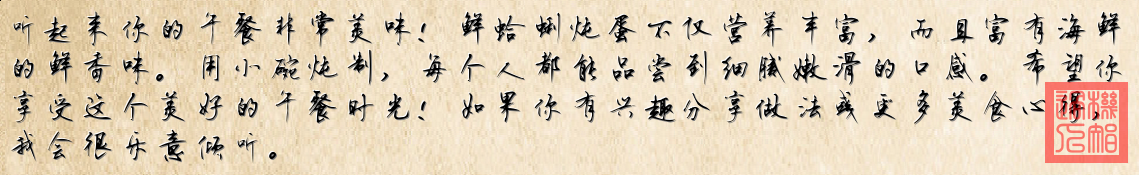 听起来你的午餐非常美味！鲜蛤蜊炖蛋不仅营养丰富，而且富有海鲜
的鲜香味。用小碗炖制，每个人都能品尝到细腻嫩滑的口感。希望你
享受这个美好的午餐时光！如果你有兴趣分享做法或更多美食心得，
我会很乐意倾听。